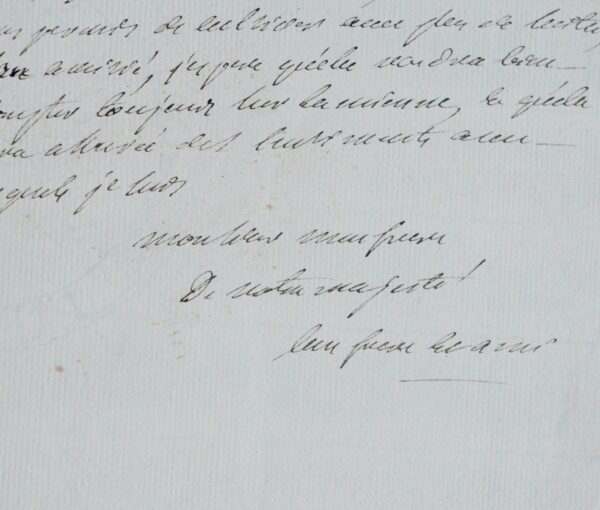 permis de cultiver avec plus de
amitié, j'espère qu'elle voudra bien
compter toujours sur la mienne, et qu'elle
sera assurée des sentiments avec
lesquels je suis
monsieur mon frere
De votre majesté
bon frere et ami